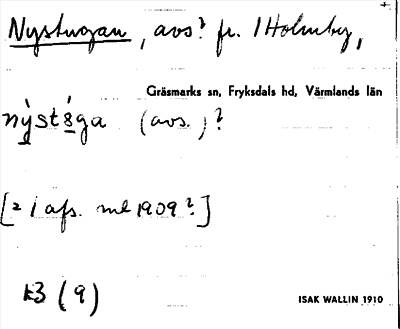 Nystugan, avs? fr. 1 Holmby,
Gräsmarks sn, Fryksdals hd, Värmlands län
(avs.)?
[= 1 afs. ml 1909?]
k3 (9)
ISAK WALLIN 1910